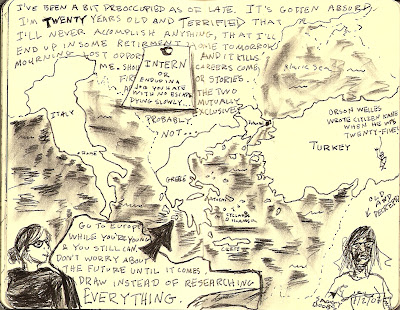 I'VE BEEN A BIT PREOCCUPIED AS OF LATE. IT'S GOTTEN ABSURD.
I'M TWENTY YEARS OLD AND TERRIFIED THAT
I'LL NEVER ACCOMPLISH ANYTHING, THAT I'LL
END UP IN SOME RETIREMENT HOME TOMORROW
MOURNING LOST OPPOR
AND IT KILLS
ME. SHOU
CAREERS COME
FIR
OR STORIES.
INTERN
OR
ENDURING A
JOB YOU HATE
WITH NO ESCAPE
DYING SLOWLY...
THE TWO
MUTUALLY
EXCLUSIVE?
PROBABLY
NOT...
BLACK SEA
ORSON WELLES
WROTE CITIZEN KANE
WHEN HE WAS
TWENTY-FIVE!
ITALY
ROME
TURKEY
GREECE
OLD
AND
DECREPID
CRETE
GO TO EUROPE
WHILE YOU'RE YOUNG
& YOU STILL CAN.
DON'T WORRY ABOUT
THE FUTURE UNTIL IT COMES.
DRAW INSTEAD OF RESEARCHING
EVERYTHING.